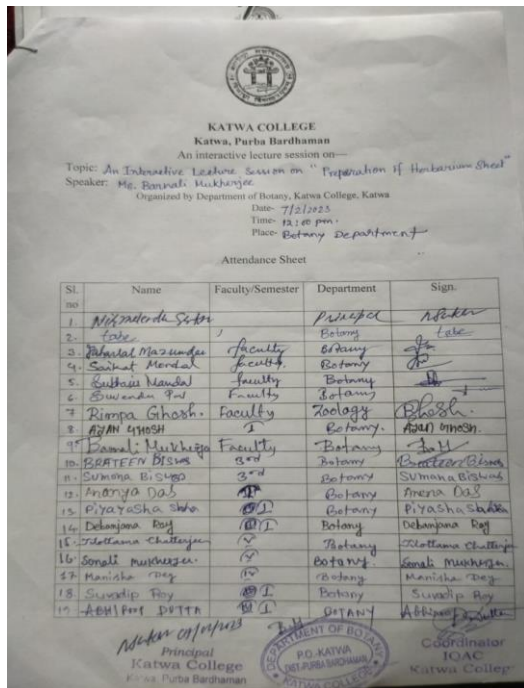 KATWA COLLEGE
Katwa, Purba Bardhaman
An interactive lecture session on—
Topic: An Interactive Lecture Session on "Preparation of Herbarium Sheet"
Speaker: Ms. Barnali Mukherjee
Organized by Department of Botany, Katwa College, Katwa
Date- 7/2/2023
Time- 12:00 p.m.
Place- Botany Department
Attendance Sheet
Sl. no Name Faculty/Semester Department Sign.
1. Principal
2. Botany
3. Mazumdar Faculty Botany
4. Saikat Mondal Faculty. Botany
5. Mandal Faculty Botany
6. Suvendu Pal Faculty Botany
7 Rimpa Ghosh. Faculty Zoology Ghosh.
8. AJAN GHOSH I Botany. AJAN GHOSH.
9. Barnali Mukherjee Faculty Botany B.M
10. BRATEEN BISWAS 3rd Botany Brateen Biswas
11. Sumana Biswas 3rd Botany Sumana Biswas
12. Ananya Das Botany Das
13. Piyayasha Saha I Botany Piyasha Saha
14. Debanjana Roy I Botany Debanjana Roy
15. Tilottama Chatterjee V Botany Tilottama Chatterjee
16. Sonali Mukherjee. V Botany. Sonali Mukherjee.
17 Manisha Dey IV Botany Manisha Dey
18. Suvadip Roy I Botany Suvadip Roy
19 ABHIROOP DUTTA I BOTANY Abhiroop Dutta
Principal
Katwa College
Katwa, Purba Bardhaman
DEPARTMENT OF BOTANY
P.O.-KATWA
DIST-PURBA BARDHAMAN
KATWA COLLEGE
Coordinator
IQAC
Katwa College